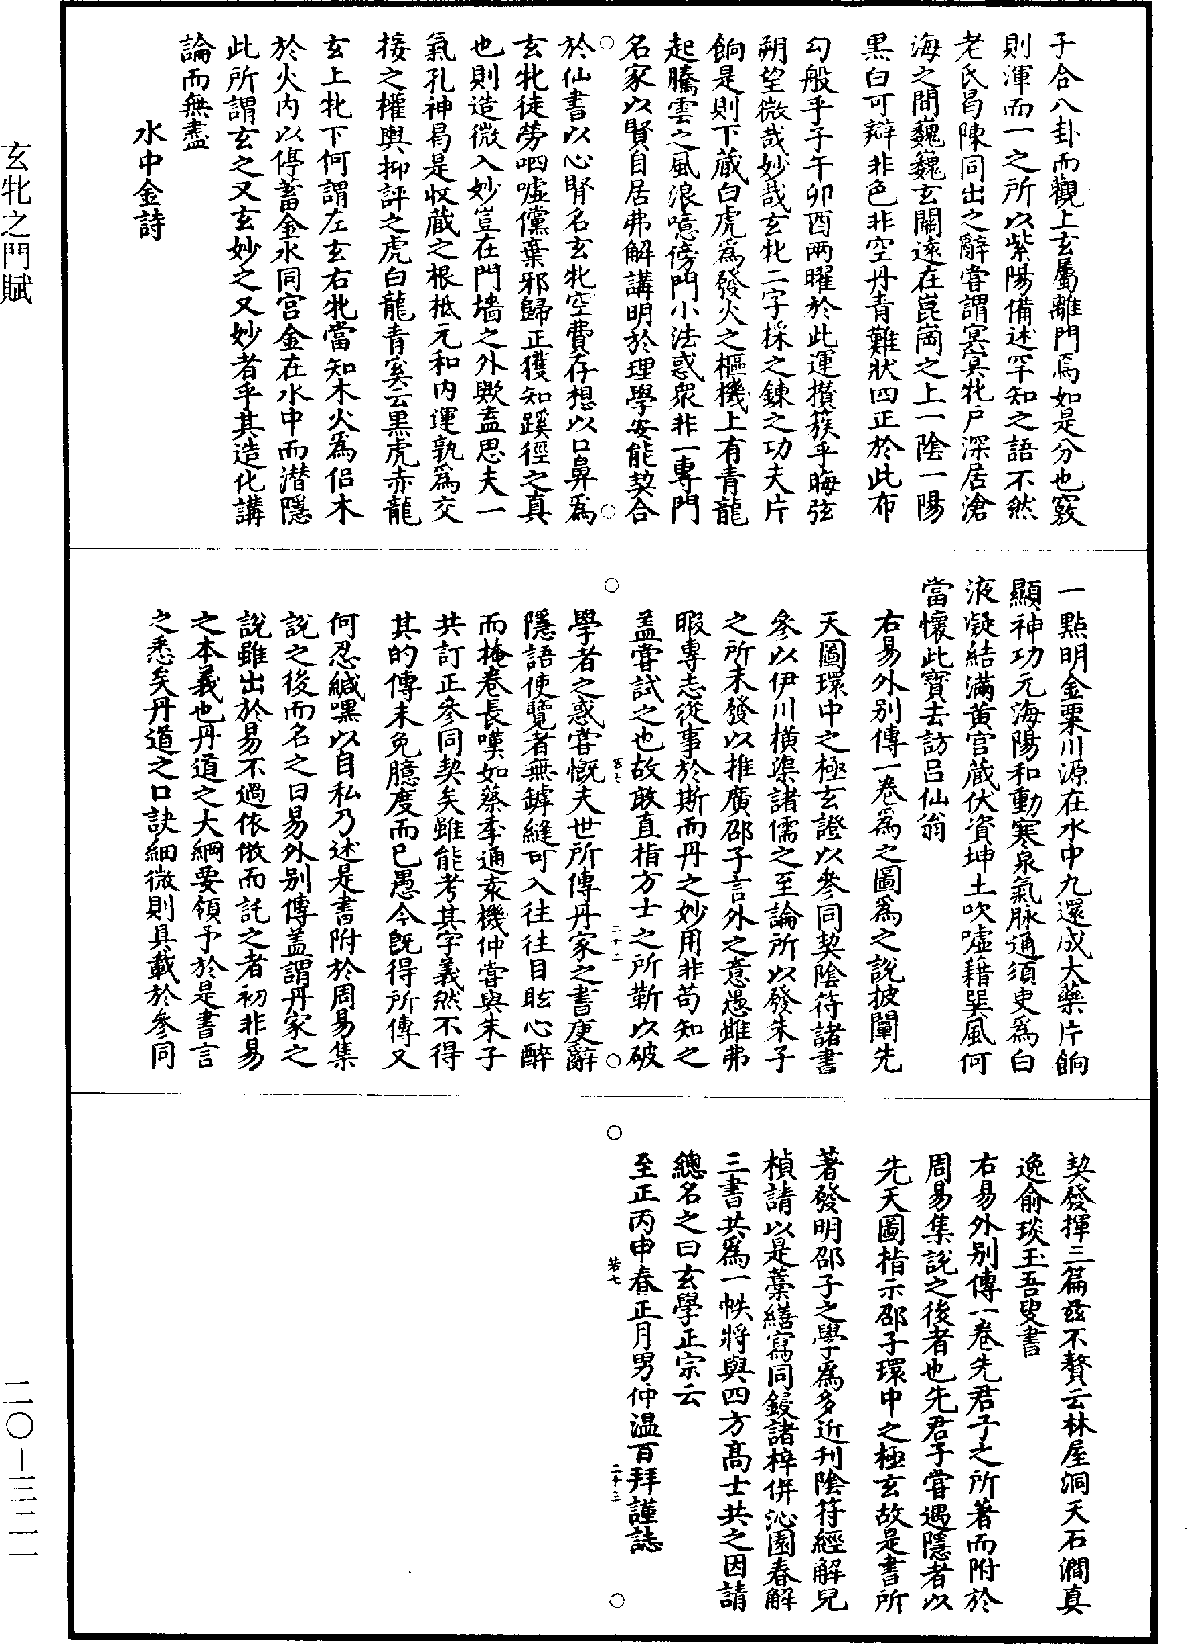 子合八卦而觀上玄屬離門焉如是分也竅
則渾而一之所以紫陽備述罕知之語不然
老氏曷陳同出之辭嘗謂冥冥牝戶深居滄
海之間巍巍玄關遠在崑崗之上一陰一陽
黑白可辯非色非空丹青難狀四正於此布
勾般乎子午卯酉兩曜於此運攢蔟乎晦弦
朔望微哉妙哉玄牝二字採之鍊之功夫片
餉是則下藏白虎爲發火之樞機上有青龍
起騰雲之風浪噫傍門小法惑衆非一專門
名家以賢自居弗解講明於理學安能契合
於仙書以心腎名玄牝空費存想以口鼻爲
玄牝徒勞呬噓儻棄邪歸正獲知蹊徑之真
也則造微入妙豈在門墻之外歟盖思夫一
氣孔神曷是收藏之根柢元和內運孰爲交
接之權輿抑評之虎白龍青奚云黑虎赤龍
玄上牝下何謂左玄右牝當知木火爲侶木
於火內以停蓄金水同宫金在水中而潜隱
此所謂玄之又玄妙之又妙者乎其造化講
論而無盡
水中金詩
一點明金粟川源在水中九還成大藥片餉
顯神功元海陽和動寒泉氣脉通須臾爲白
液凝結滿黄宫藏伏資坤土吹噓藉巽風何
當懷此寶去訪吕仙翁
右易外别傳一卷為之圖爲之說披闡先
天圖環中之極玄證以參同契陰符諸書
參以伊川横渠諸儒之至論所以發朱子
之所未發以推廣邵子言外之意愚雖弗
暇專志從事於斯而丹之妙用非苟知之
盖嘗試之也故敢直指方士之所靳以破
學者之惑嘗慨夫世所傳丹家之書廋辭
隱語使覽者無罅縫可入往往目眩心醉
而掩卷長嘆如蔡季通袁機仲嘗與朱子
共訂正參同契矣雖能考其字義然不得
其的傳未免臆度而已愚今既得所傳又
何忍緘嘿以自私乃述是書附於周易集
說之後而名之曰易外别傳盖謂丹家之
說雖出於易不過依倣而託之者初非易
之本義也丹道之大綱要領予於是書言
之悉矣丹道之口訣細微則具載於參同
契發揮三篇兹不贅云林屋洞天石澗真
逸俞琰玉吾叟書
右易外别傳一卷先君子之所著而附於
周易集說之後者也先君子嘗遇隱者以
先天圖指示邵子環中之極玄故是書所
著發明邵子之學為多近刊陰符經解兒
楨請以是藁繕寫同鋟諸梓併沁園春解
三書共爲一帙將與四方高士共之因請
總名之曰玄學正宗云
至正丙申春正月男仲溫百拜謹誌
若七
二十二
若七
二十三
玄牝之門賦
二〇—三二一